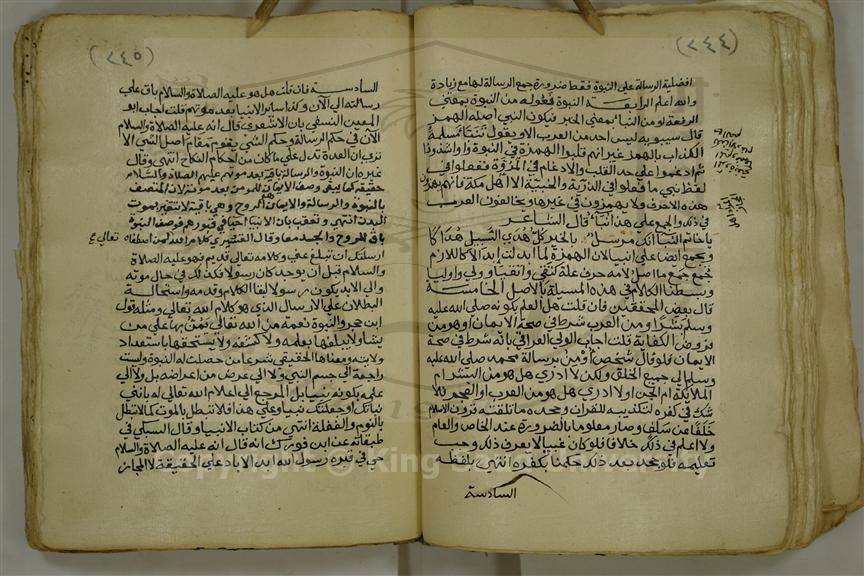 (٢٤٤)
افضلية الرسالة على النبوة فقط ضرورة جمع الرسالة لها مع زيادة
والله اعلم الرابعة النبوة فعولة من النبوة بمعنى
الرفعة او من النبأ بمعنى الخبر فيكون النبي اصله الهمز
قال سيبويه ليس احد من العرب الا ويقول تنبأ مسيلمة
الكذاب بالهمز غير انهم قلبوا الهمزة في النبوة واوا شذوذا
ثم ادغموا على حد القلب والادغام في المروة ففعلوا في
لفظ نبي ما فعلوا في الذرية والخبية الا اهل مكة فانهم يهمزون
هذه الاحرف ولا يهمزون في غيرها ويخالفون العرب
في ذلك والجمع على هذا انبآء قال الشاعر
يا خاتم النبآء انك مرسل بالخير كل هدى السبيل هداكا
ويجمع ايضا على انبيا لان الهمزة لما ابدلت ابدالا لازم
جمع جمع ما اصل لامه حرف علة كتقي واتقيا وولي واوليا
وبسطنا الكلام في هذه المسيلة بالاصل الخامسة
قال بعض المحققين فان قلت هل العلم بكونه صلى الله عليه
وسلم بشرا ومن العرب شرط في صحة الايمان او هو من
فروض الكفاية قلت اجاب الولي العراقي بانه شرط في صحة
الايمان فلو قال شخص أومن برسالة محمد صلى الله عليه
وسلم الى جميع الخلق ولكن لا ادري هل هو من البشر ام
الملائكة ام الجن او لا ادري هل هو من العرب او العجم فلا
شك في كفره لتكذيبه للقرآن وجحده ما تلقته قرون الاسلام
خلفا عن سلف وصار معلوما بالضرورة عند الخاص والعام
ولا اعلم في ذلك خلافا فلو كان غبيا لا يعرف ذلك وجب
تعليمه فلو جحد بعد ذلك حكمنا بكفره انتهى بلفظه
السادسة
(٢٤٥)
السادسة فان قلت هل هو عليه الصلاة والسلام باق على
رسالته الى الآن وكذا ساير الانبيا بعد موتهم قلت اجاب ابو
المعين النسفي بان الاشعري قال انه عليه الصلاة والسلام
الآن في حكم الرسالة وحكم الشي يقوم مقام اصل الشي الا
ترى ان العدة تدل على ما كان من احكام النكاح انتهى وقال
غيره ان النبوة والرسالة باقية بعد موته عليهم الصلاة والسلام
حقيقة كما يبقى وصف الايمان للمومن بعد موته لان المتصف
بالنبوة والرسالة والايمان هو الروح وهي باقية لا تتغير بموت
البدن انتهى وتعقب بان الانبيا احيا في قبورهم فوصف النبوة
باق للروح والجسد معا وقال القشيري كلام الله لمن اصطفاه
ارسلتك ان تبلغ عني وكلامه تعالى قديم فهو عليه الصلاة
والسلام قبل ان يوجد كان رسولا فكذلك في حال موته
والى الابد يكون رسولا لبقا الكلام وقدمه واستحالة
البطلان على الارسال الذي هو كلام الله تعالى ومثله قول
ابن حجر والنبوة نعمة من الله تعالى يمن بها على من
يشا ولا يبلغها بعلمه ولا كشفه ولا يستحقها باستعداد
ولايته ومعناها الحقيقي شرعا من حصلت له النبوة وليست
راجعة الى جسم النبي ولا الى عرض من اعراضه بل ولا الى
علمه بكونه نبيا بل المرجع الى اعلام الله تعالى له باني
نباتك او جعلتك نبيا وعلى هذا فلا تبطل بالموت كما لا تبطل
بالنوم والغفلة انتهى من كتاب الانبيا وقال السبكي في
طبقاته عن ابن فورك انه قال انه عليه الصلاة والسلام
حي في قبره رسول الله ابد الاباد على الحقيقة لا المجاز